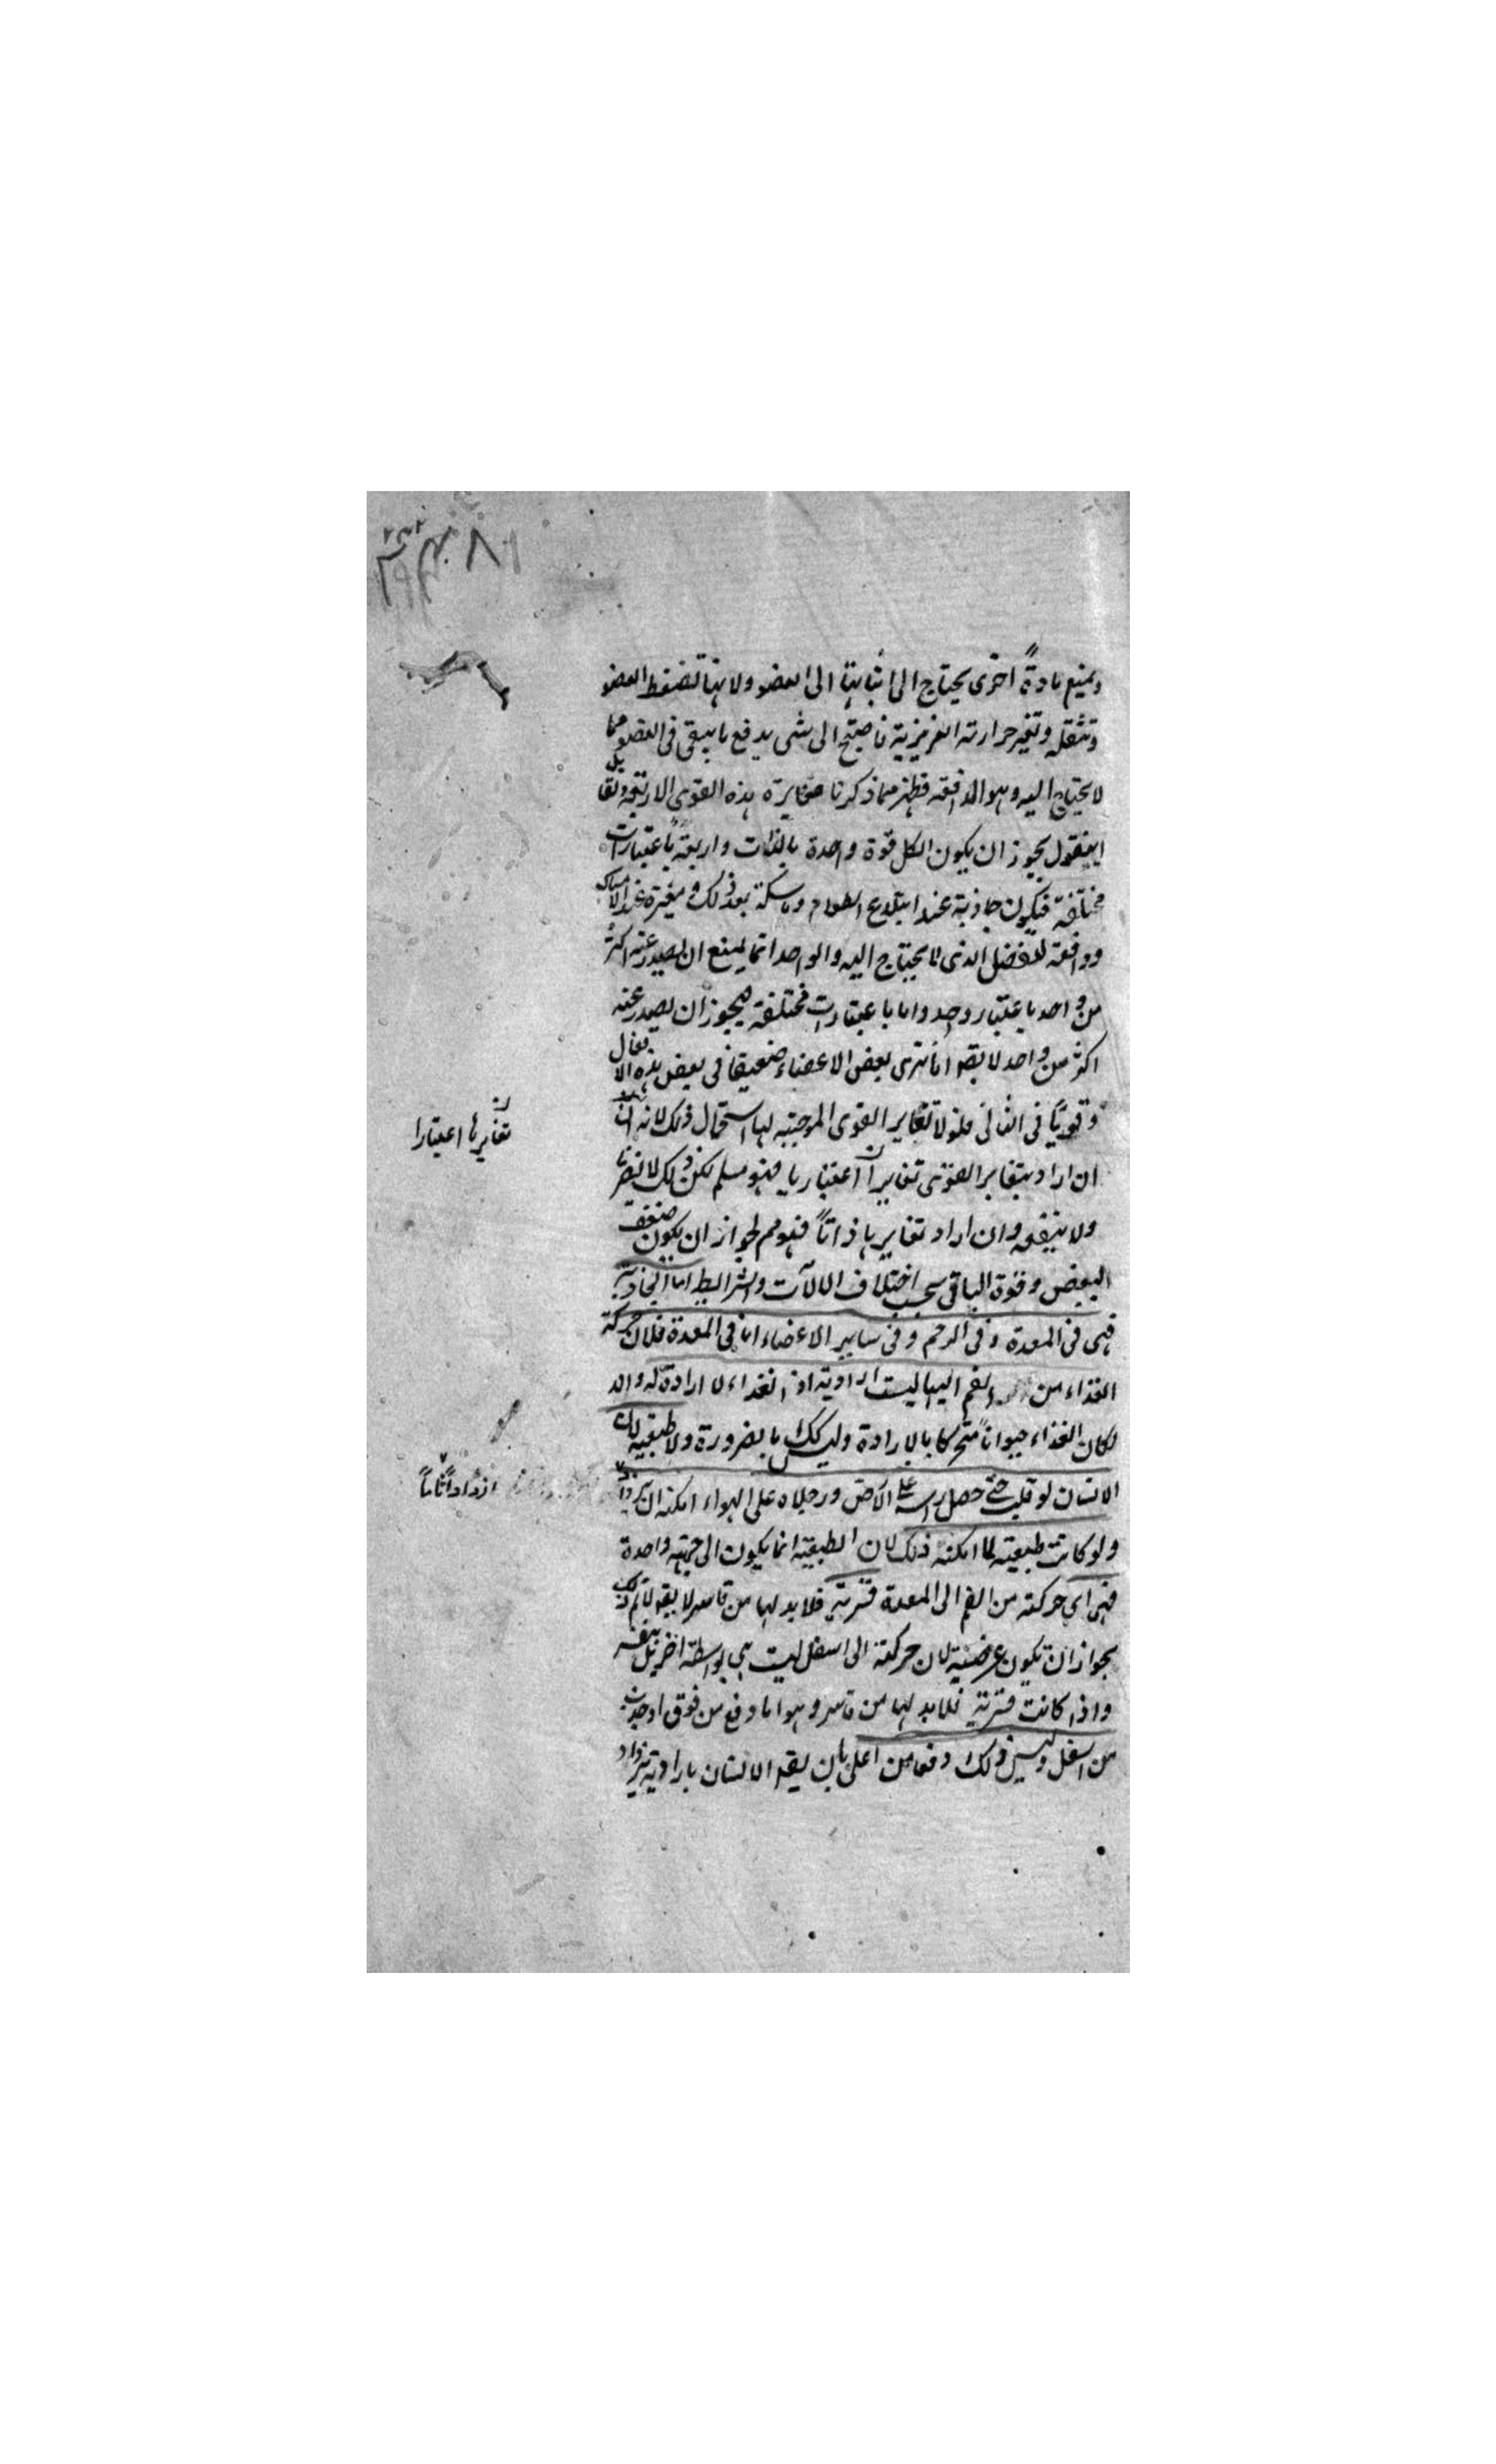 ويمنع مادةً اخرى يحتاج الى اتيانها الى العضو ولانها تضغط العضو
وتثقله وتغير حرارته الغريزية فاحتيج الى شى يدفع ما يبقى فى العضو مما
لا يحتاج اليه وهو الدافعه فظهر مما ذكرنا مغايرة هذه القوى الاربعة ولقا
يل ان يقول يجوز ان يكون الكل قوة واحدة بالذات واربعةً باعتبارات
مختلفة فيكون جاذبة عند ابتلاع الطعام وماسكة بعد ذلك ومغيرة عند الامساك
ودافعة للفضل الذى لا يحتاج اليه والواحد انما يمنع ان يصدر عنه اكثر
من واحد باعتبار واحد واما باعتبارات مختلفة فيجوز ان يصدر عنه
اكثر من واحد لا يقو انا نرى بعض الاعضاء ضعيفا فى بعض هذه الافعال
وقويًا فى الثانى فلولا تغاير القوى الموجبة لها استحال ذلك لانه
ان اراد بتغاير القوى تغايراً اعتباريا فهو مسلم لكن ذلك لا يضرنا
ولا ينفعه وان اراد تغايرها ذاتاً فهو مم لجواز ان يكون ضعف
البعض وقوة الباقى بسبب اختلاف الالآت والشرايط اما الجاذبة
فهى فى المعدة وفى الرحم وفى ساير الاعضاء اما فى المعدة فلان حركة
الغذاء من الفم اليها ليست ارادية اذ الغذاء لا ارادة له والا
لكان الغذاء حيواناً متحركا بالارادة وليس كك بالضرورة ولا طبيعية لان
الانسان لو قلب حتى حصل راسه على الارض ورجلاه على الهواء امكنه ان يزدرد
ولو كانت طبيعية لما امكنه ذلك لان الطبيعية انما يكون الى جهة واحدة
فهى اى حركته من الفم الى المعدة قسرية فلا بد لها من قاسر لا يقو لا نم ذلك
بجواز ان تكون عرضية لان حركتة الى اسفل ليست هى بواسطة اخر بل بنفسه
واذا كانت قسرية فلا بد لها من قاسر وهو اما دفع من فوق او جذب
من اسفل وليس ذلك دفعا من اعلى بان يقو الانسان بارادته يزدرد
تغايرها اعتبارا
ازدراداً تاماً